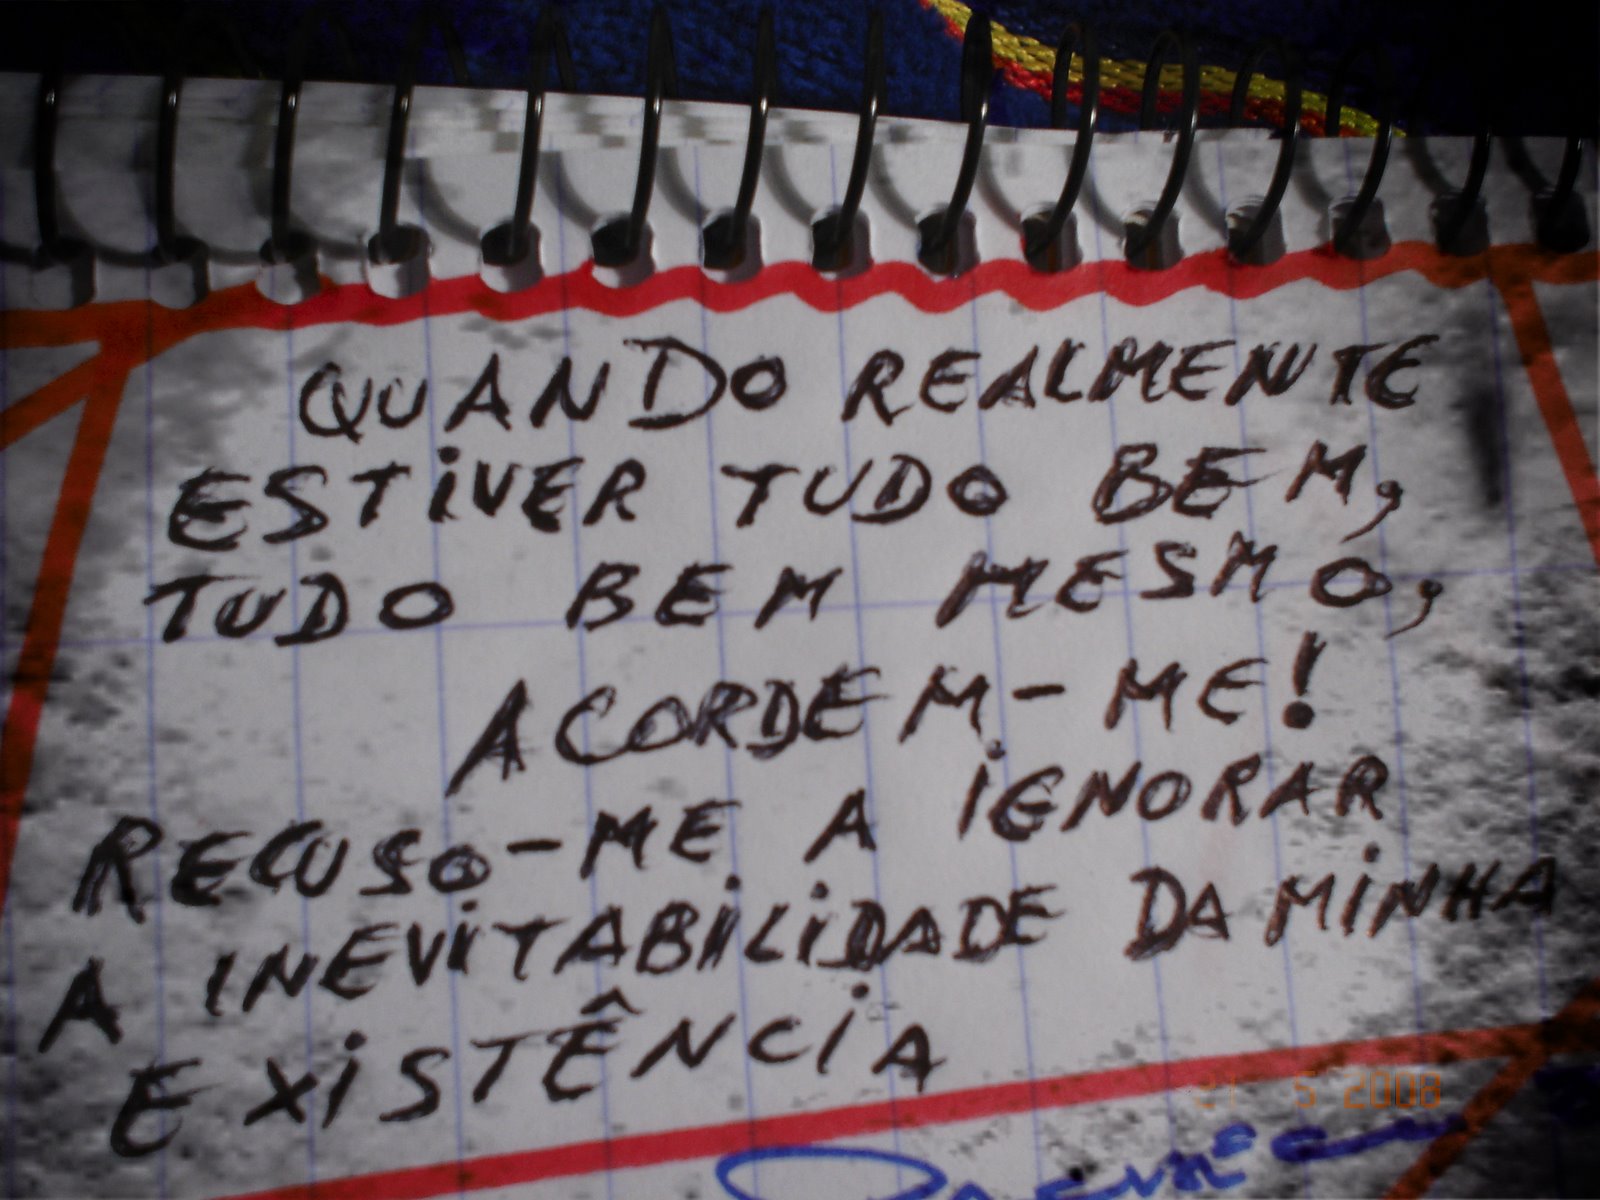 QUANDO REALMENTE
ESTiVER TUDO BEM,
TUDO BEM MESMO,
ACORDEM-ME!
RECUSO-ME A iGNORAR
A INEViTABiLiDADE DA MiNHA
EXiSTÊNCiA
5 2008